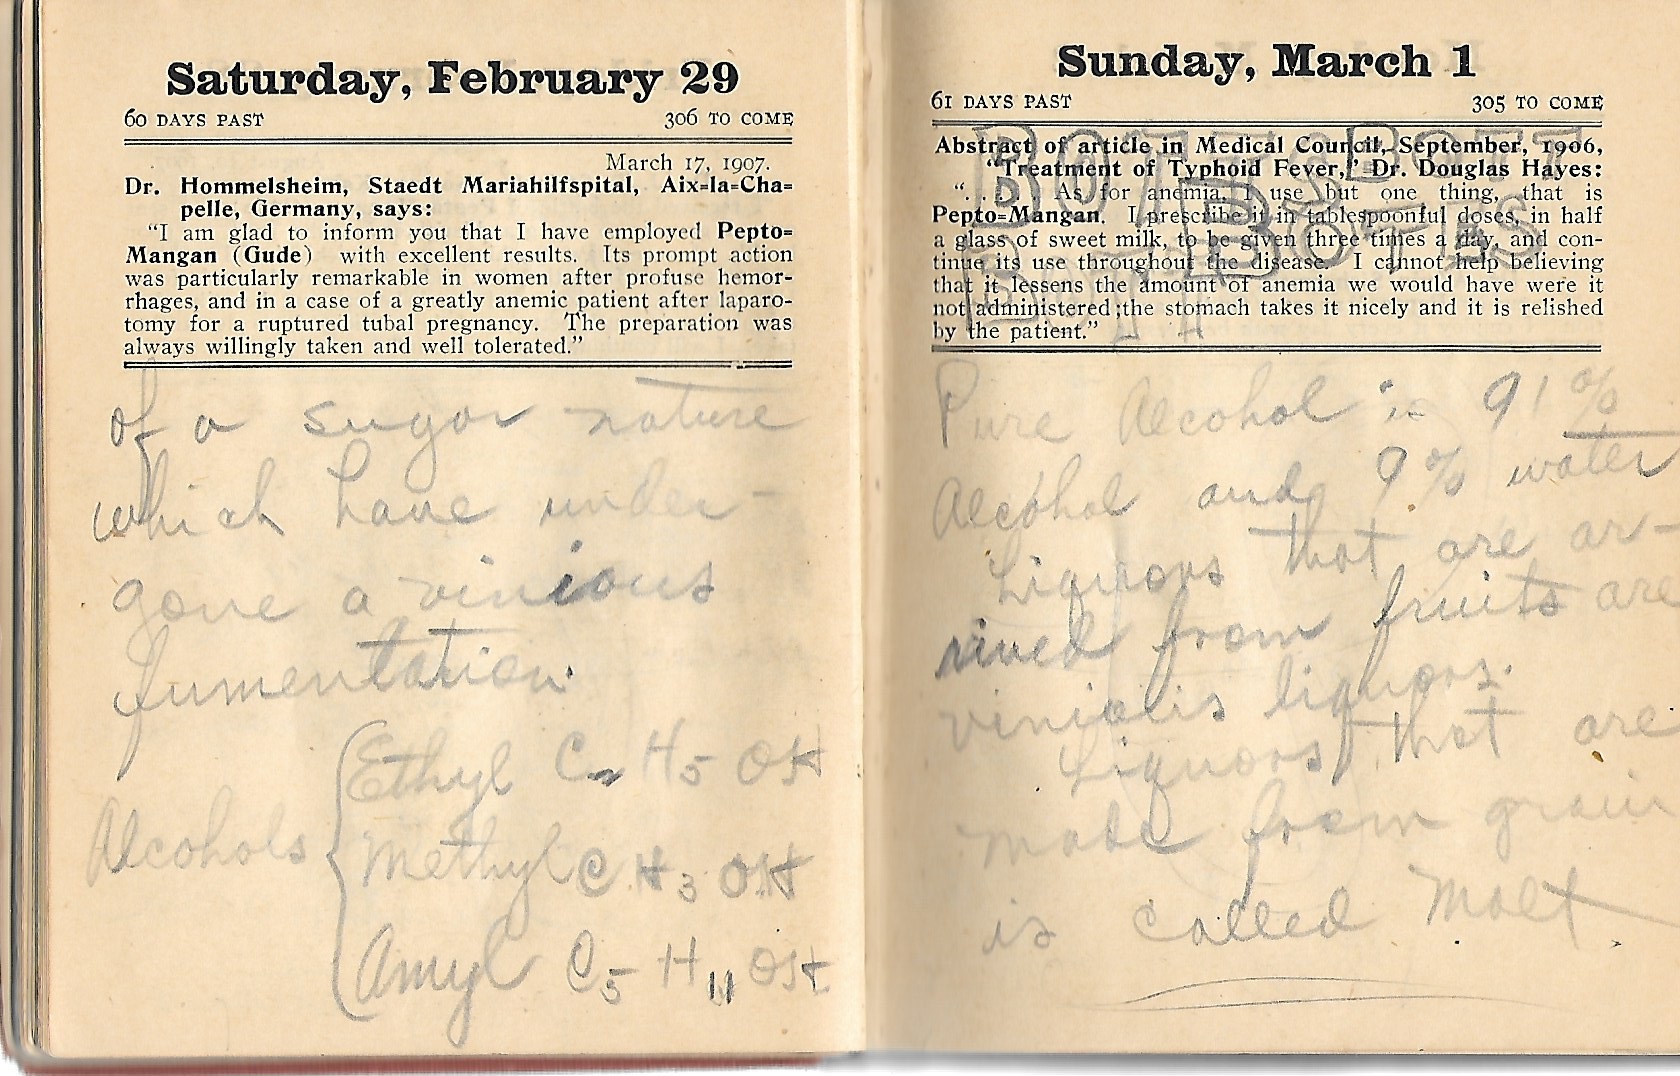 Saturday, February 29
60 DAYS PAST 306 TO COME
March 17, 1907.
Dr. Hommelsheim, Staedt Mariahilfspital, Aix=la=Cha=
pelle, Germany, says:
"I am glad to inform you that I have employed Pepto=
Mangan (Gude) with excellent results. Its prompt action
was particularly remarkable in women after profuse hemor-
rhages, and in a case of a greatly anemic patient after laparo-
tomy for a ruptured tubal pregnancy. The preparation was
always willingly taken and well tolerated."
of a sugar nature
which have under-
gone a vinious
fumentation.
Alcohols
Ethyl C2 H5 OH
Methyl C H3 OH
Amyl C5 H11 OH
Sunday, March 1
61 DAYS PAST 305 TO COME
Abstract of article in Medical Council, September, 1906,
"Treatment of Typhoid Fever," Dr. Douglas Hayes:
". . . As for anemia, I use but one thing, that is
Pepto=Mangan. I prescribe it in tablespoonful doses, in half
a glass of sweet milk, to be given three times a day, and con-
tinue its use throughout the disease. I cannot help believing
that it lessens the amount of anemia we would have were it
not administered; the stomach takes it nicely and it is relished
by the patient."
BOTTS BOTT
BOTES
BOTT
Pure Alcohol is 91%
Alcohol and 9% water
Liquors that are ar-
rived from fruits are
vinialis liquors.
Liquors that are
made from grain
is called Malt